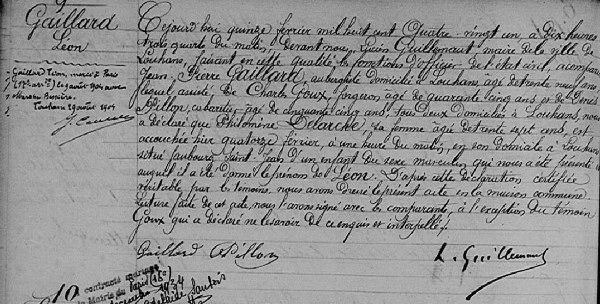 Gaillard
Léon
Gaillard Léon, marié à Paris
(17e arr.t) le 9 août 1904 avec
Louhans 19 août 1904
Cejourd'hui quinze février mil huit cent Quatre-vingt un, à dix heures
trois quarts du matin, devant nous, Guillemaut, maire de la ville de
Louhans, faisant en cette qualité les fonctions d'officier de l'état civil, a comparu
Jean Pierre Gaillard, aubergiste domicilié à Louhans, âgé de trente neuf ans
lequel assisté de Charles Goux, forgeron âgé de quarante cinq ans et de Denis
Pillon, cabaretier âgé de cinquante cinq ans, tous deux domiciliés à Louhans, nous
a déclaré que Philomène Delarche, sa femme âgée de trente sept ans, est
accouchée hier quatorze février, à une heure du matin, en son domicile à Louhans
situé faubourg Saint Jean d'un enfant du sexe masculin qui nous a été présenté
auquel il a été donné le prénom de Léon. D'après cette déclaration certifiée
véritable par les témoins, nous avons dressé le présent acte en la maison commune.
Lecture faite de cet acte, nous l'avons signé avec les comparants, à l'exception du témoin
Goux qui a déclaré ne le savoir de ce enquis et interpellé.
Gaillard Pillon
L. Guillemaut
contracté mariage
la Mairie de Paris (16e)
1934